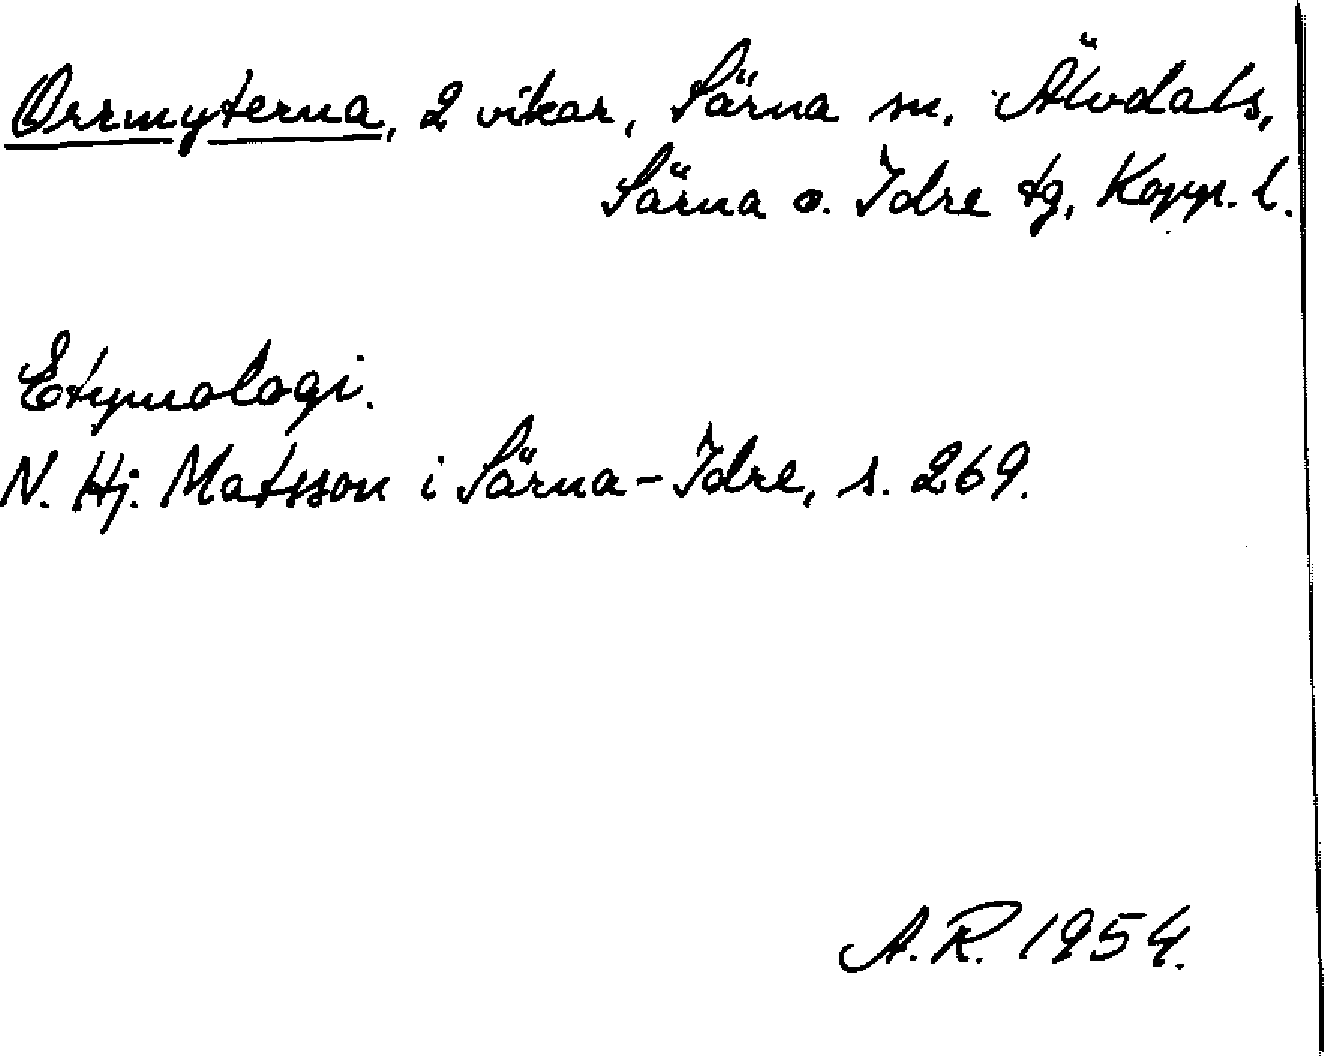 Orrmyterna, 2 vikar, Särna sn, Älvdals,
Särna o. Idre tg, Kopp. l.
Etymologi.
N. Hj. Matsson i Särna-Idre, s. 269.
A.R. 1954.